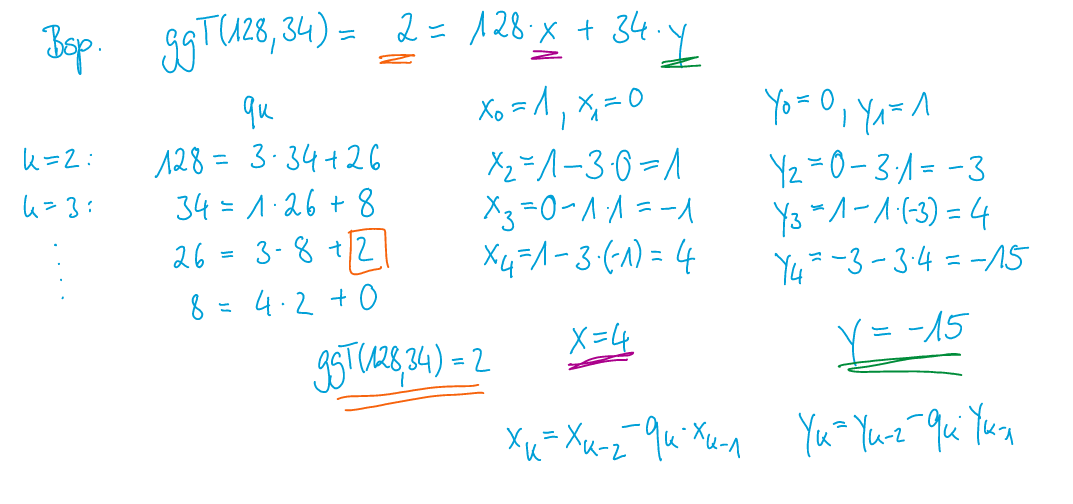 Bsp. ggT(128,34) = 2 = 128·x + 34·y
qₖ x₀=1, x₁=0 y₀=0, y₁=1
k=2: 128 = 3·34+26 x₂=1-3·0=1 y₂=0-3·1=-3
k=3: 34 = 1·26+8 x₃=0-1·1=-1 y₃=1-1·(-3)=4
26 = 3·8+2 x₄=1-3·(-1)=4 y₄=-3-3·4=-15
8 = 4·2+0
x=4 y=-15
ggT(128,34)=2
xₖ=xₖ₋₂-qₖ·xₖ₋₁ yₖ=yₖ₋₂-qₖ·yₖ₋₁